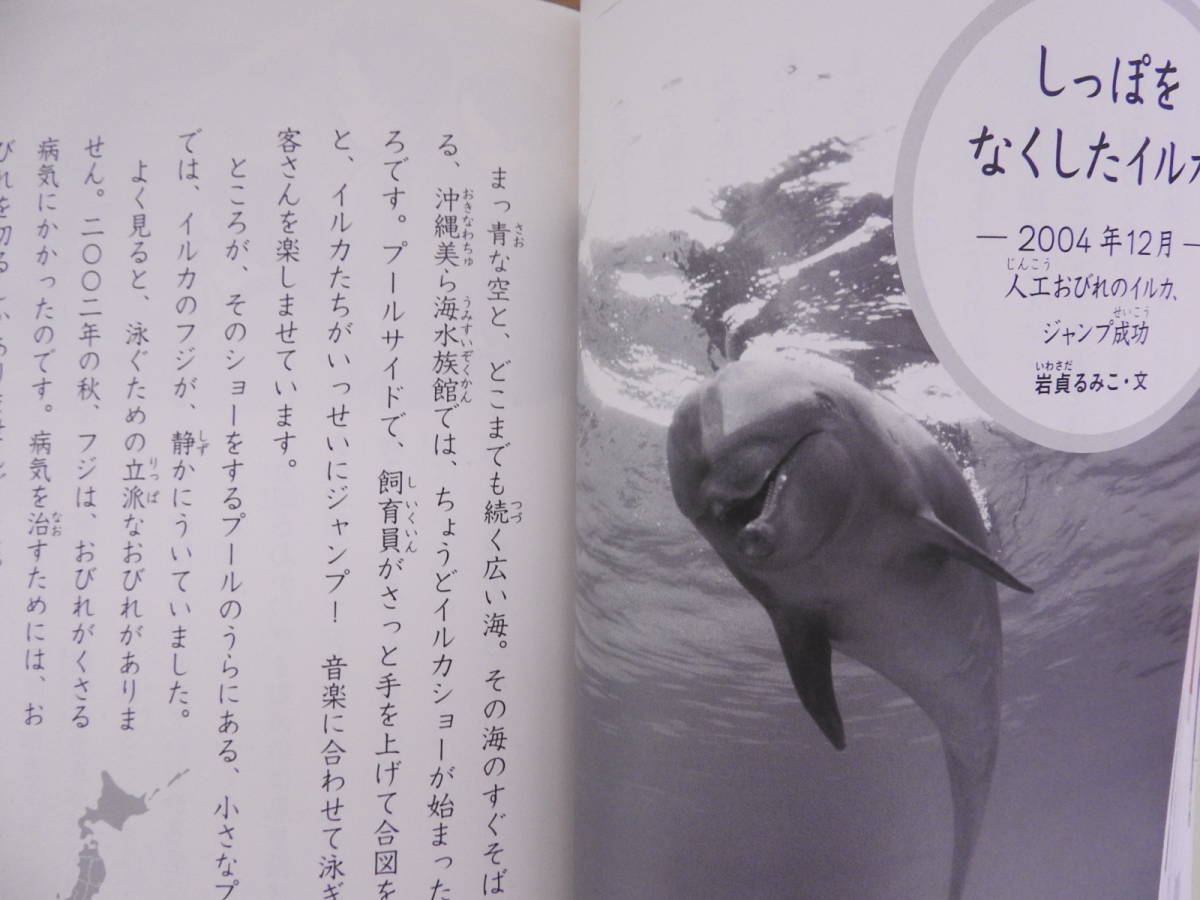 しっぽを
なくしたイルカ
―2004年12月―
人工おびれのイルカ、
ジャンプ成功
岩貞るみこ・文
まっ青な空と、どこまでも続く広い海。その海のすぐそば
る、沖縄美ら海水族館では、ちょうどイルカショーが始まった
ろです。プールサイドで、飼育員がさっと手を上げて合図を
と、イルカたちがいっせいにジャンプ！　音楽に合わせて泳ぎ
客さんを楽しませています。
ところが、そのショーをするプールのうらにある、小さなプ
では、イルカのフジが、静かにういていました。
よく見ると、泳ぐための立派なおびれがありま
せん。二〇〇二年の秋、フジは、おびれがくさる
病気にかかったのです。病気を治すためには、お
びれを切るしかありません